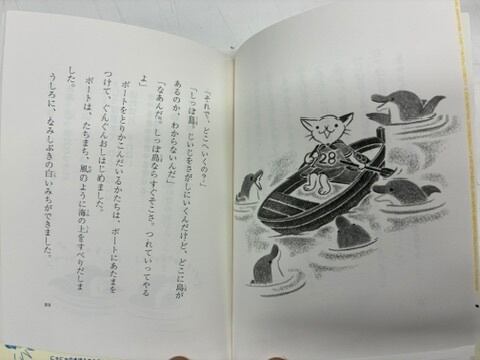 「それで、どこへいくの？」
「しっぽ島。じいじをさがしにいくんだけど、どこに島が
あるのか、わからないんだ」
「なあんだ。しっぽ島ならすぐそこさ。つれていってやる
よ」
ボートをとりかこんだいるかたちは、ボートにあたまを
つけて、ぐんぐんおしはじめました。
ボートは、たちまち、風のように海の上をすべりだしま
した。
うしろに、なみしぶきの白いみちができました。
28